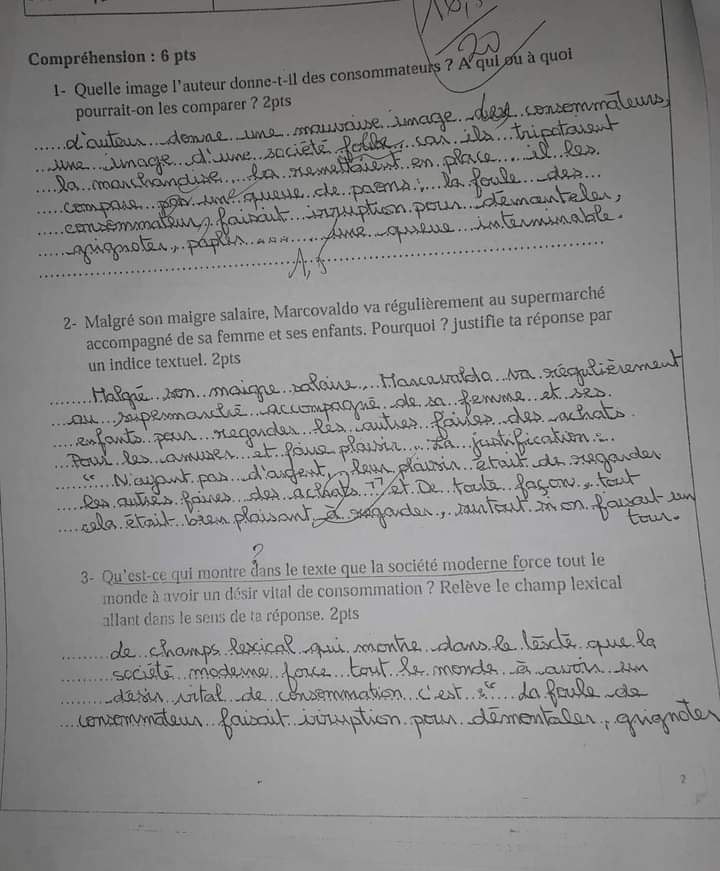 20
Compréhension : 6 pts
1- Quelle image l'auteur donne-t-il des consommateurs ? A qui ou à quoi
pourrait-on les comparer ? 2pts
L'auteur donne une mauvaise image des consommateurs,
une image d'une société car ils tripotaient
la marchandise, La remettaient en place... il les
compare une queue de paons, la foule des...
consommateur, faisait irruption pour démanteler,
grignoter, ... une queue interminable.
1,5
2- Malgré son maigre salaire, Marcovaldo va régulièrement au supermarché
accompagné de sa femme et ses enfants. Pourquoi ? justifie ta réponse par
un indice textuel. 2pts
Malgré son maigre salaire, Marcavaldo va régulièrement
au supermarché accompagné de sa femme et ses
enfants pour regarder les autres faires des achats.
Pour les amuser et faire plaisir. La justification :
" N'ayant pas d'argent, leur plaisir était de regarder
les autres faires des achats " et De toute façon, tout
cela était bien plaisant à regarder, surtout si on faisait un
tour.
?
3- Qu'est-ce qui montre dans le texte que la société moderne force tout le
monde à avoir un désir vital de consommation ? Relève le champ lexical
allant dans le sens de ta réponse. 2pts
Le champs lexical qui montre dans le texte que la
société moderne force tout le monde à avoir un
désir vital de consommation c'est : " La foule de
consommateur faisait irruption pour démontaler, grignoter
2